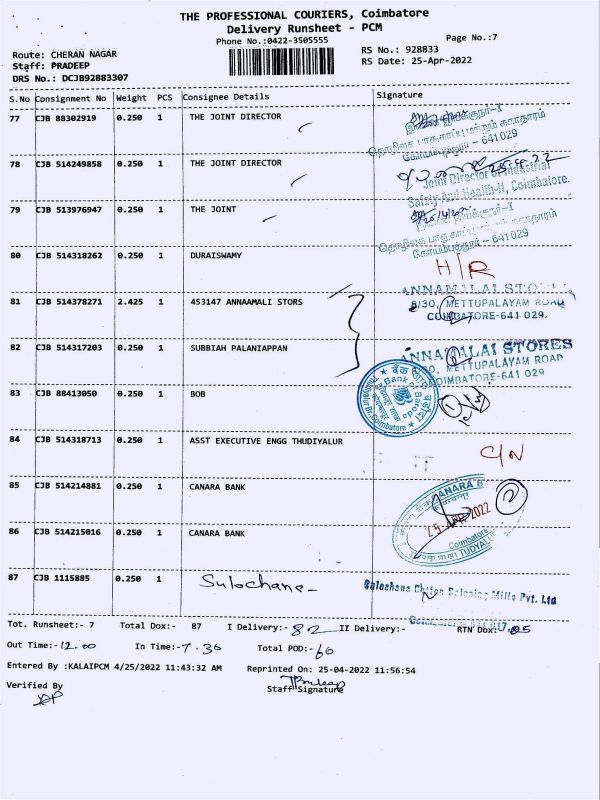 THE PROFESSIONAL COURIERS, Coimbatore
Delivery Runsheet - PCM
Phone No.:0422-3505555
Page No.:7
Route: CHERAN NAGAR
RS No.: 928833
Staff: PRADEEP
RS Date: 25-Apr-2022
DRS No.: DCJB92883307
S.No Consignment No Weight PCS Consignee Details Signature
77 CJB 88302919 0.250 1 THE JOINT DIRECTOR
தொழிலக பாதுகாப்பு மற்றும் சுகாதாரம்
கோயம்புத்தூர் - 641 029
78 CJB 514249858 0.250 1 THE JOINT DIRECTOR
25-4-22
Joint Director of Industrial
Safety And Health-II, Coimbatore.
79 CJB 513976947 0.250 1 THE JOINT
தொழிலக பாதுகாப்பு மற்றும் சுகாதாரம்
கோயம்புத்தூர் - 641 029
80 CJB 514318262 0.250 1 DURAISWAMY H/R
81 CJB 514378271 2.425 1 453147 ANNAAMALI STORS
ANNAMALAI STORES
8/30, METTUPALAYAM ROAD
COIMBATORE-641 029.
82 CJB 514317203 0.250 1 SUBBIAH PALANIAPPAN
ANNAMALAI STORES
METTUPALAYAM ROAD
COIMBATORE-641 029
83 CJB 88413050 0.250 1 BOB
Bank of Baroda
बैंक ऑफ़ बड़ौदा
Thudiyalur Br. Coimbatore
1
84 CJB 514318713 0.250 1 ASST EXECUTIVE ENGG THUDIYALUR C/N
85 CJB 514214881 0.250 1 CANARA BANK
CANARA B
2
25 APR 2022
Coimbatore
86 CJB 514215016 0.250 1 CANARA BANK
87 CJB 1115885 0.250 1 Sulochana
Sulochana Cotton Spinning Mills Pvt. Ltd
Tot. Runsheet:- 7 Total Dox:- 87 I Delivery:- 82 II Delivery:- RTN Dox:- 05
Out Time:- 12.00 In Time:- 7.30 Total POD:- 60
Entered By :KALAIPCM 4/25/2022 11:43:32 AM Reprinted On: 25-04-2022 11:56:54
Verified By
Staff Signature